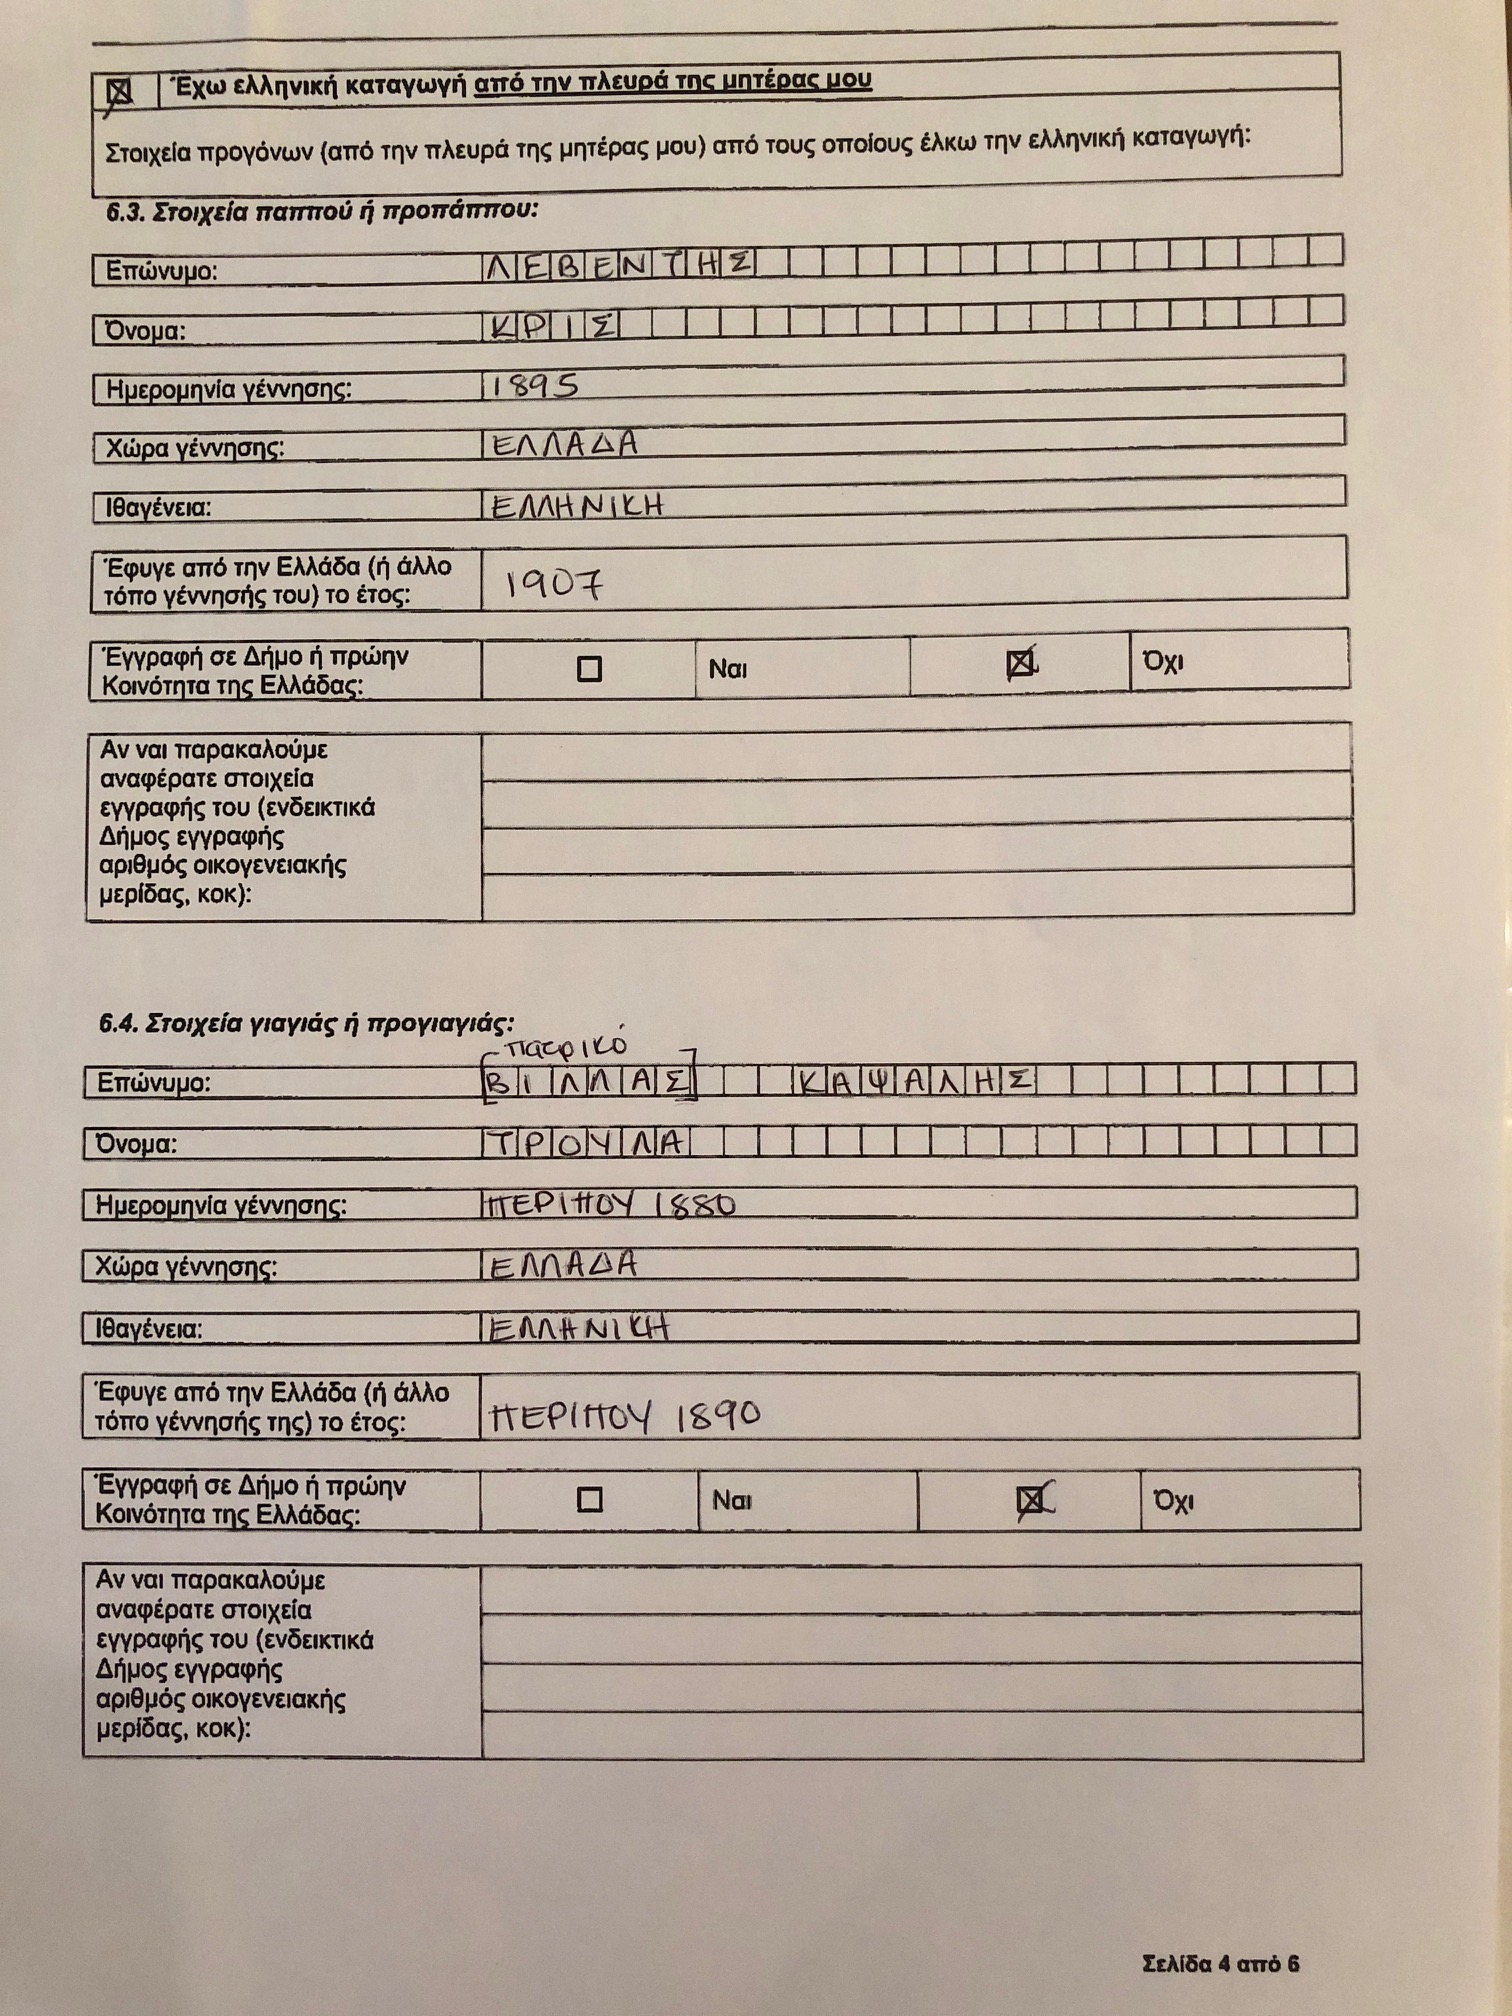 ☒ Έχω ελληνική καταγωγή από την πλευρά της μητέρας μου
Στοιχεία προγόνων (από την πλευρά της μητέρας μου) από τους οποίους έλκω την ελληνική καταγωγή:
6.3. Στοιχεία παππού ή προπάππου:
Επώνυμο: ΛΕΒΕΝΤΗΣ
Όνομα: ΚΡΙΣ
Ημερομηνία γέννησης: 1895
Χώρα γέννησης: ΕΛΛΑΔΑ
Ιθαγένεια: ΕΛΛΗΝΙΚΗ
Έφυγε από την Ελλάδα (ή άλλο
τόπο γέννησής του) το έτος: 1907
Έγγραφή σε Δήμο ή πρώην
Κοινότητα της Ελλάδας: ☐ Ναι ☒ Όχι
Αν ναι παρακαλούμε
αναφέρατε στοιχεία
εγγραφής του (ενδεικτικά
Δήμος εγγραφής
αριθμός οικογενειακής
μερίδας, κοκ):
6.4. Στοιχεία γιαγιάς ή προγιαγιάς:
πατρικό
Επώνυμο: [ΒΙΛΛΑΣ] ΚΑΨΑΛΗΣ
Όνομα: ΤΡΟΥΛΑ
Ημερομηνία γέννησης: ΠΕΡΙΠΟΥ 1880
Χώρα γέννησης: ΕΛΛΑΔΑ
Ιθαγένεια: ΕΛΛΗΝΙΚΗ
Έφυγε από την Ελλάδα (ή άλλο
τόπο γέννησής της) το έτος: ΠΕΡΙΠΟΥ 1890
Έγγραφή σε Δήμο ή πρώην
Κοινότητα της Ελλάδας: ☐ Ναι ☒ Όχι
Αν ναι παρακαλούμε
αναφέρατε στοιχεία
εγγραφής του (ενδεικτικά
Δήμος εγγραφής
αριθμός οικογενειακής
μερίδας, κοκ):
Σελίδα 4 από 6